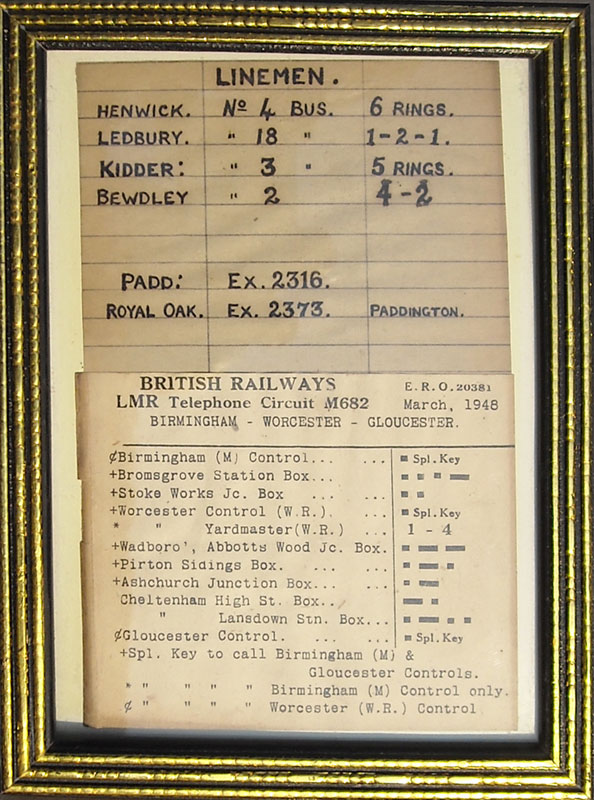 LINEMEN.
HENWICK. Nº 4 BUS. 6 RINGS.
LEDBURY. " 18 " 1-2-1.
KIDDER: " 3 " 5 RINGS.
BEWDLEY " 2 4-2
PADD: Ex. 2316.
ROYAL OAK. Ex. 2373. PADDINGTON.
BRITISH RAILWAYS E.R.O. 20381
LMR Telephone Circuit M682 March, 1948
BIRMINGHAM - WORCESTER - GLOUCESTER.
ØBirmingham (M) Control... ... ▪ Spl. Key
+Bromsgrove Station Box... ▪ ▪ ▪ ▬
+Stoke Works Jc. Box ... ... ▪ ▪
+Worcester Control (W.R.). ... ▪ Spl. Key
* " Yardmaster(W.R.) ... 1 - 4
+Wadboro', Abbotts Wood Jc. Box. ▪ ▬ ▬
+Pirton Sidings Box. ... ... ▪ ▬ ▪
+Ashchurch Junction Box... ... ▪ ▬
Cheltenham High St. Box.. ▬ ▪
" Lansdown Stn. Box... ▪ ▬ ▪ ▪
ØGloucester Control. ... ... ▪ Spl. Key
+Spl. Key to call Birmingham (M) &
Gloucester Controls.
* " " " " Birmingham (M) Control only.
Ø " " " " Worcester (W.R.) Control